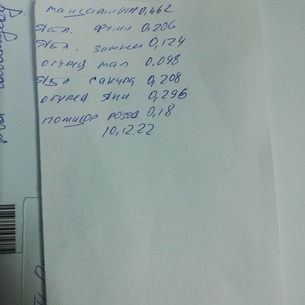 мандарины 0,462
Ябл. фуши 0,206
Ябл. зимни 0,124
огурец мал 0,098
Ябл сакура 0,208
огурец Яни 0,296
помидор роза 0,18
10.12.22